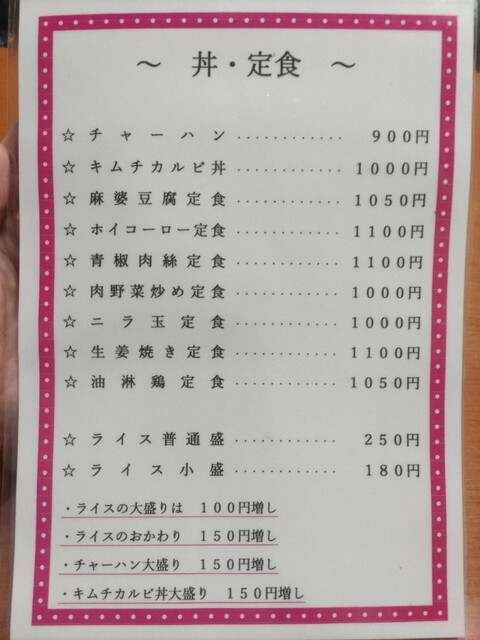 ～ 丼・定食 ～
☆ チャーハン ............ 900円
☆ キムチカルビ丼 ............ 1000円
☆ 麻婆豆腐定食 ............ 1050円
☆ ホイコーロー定食 ............ 1100円
☆ 青椒肉絲定食 ............ 1100円
☆ 肉野菜炒め定食 ............ 1000円
☆ ニラ玉定食 ............ 1000円
☆ 生姜焼き定食 ............ 1100円
☆ 油淋鶏定食 ............ 1050円
☆ ライス普通盛 ............ 250円
☆ ライス小盛 ............ 180円
・ライスの大盛りは 100円増し
・ライスのおかわり 150円増し
・チャーハン大盛り 150円増し
・キムチカルビ丼大盛り 150円増し